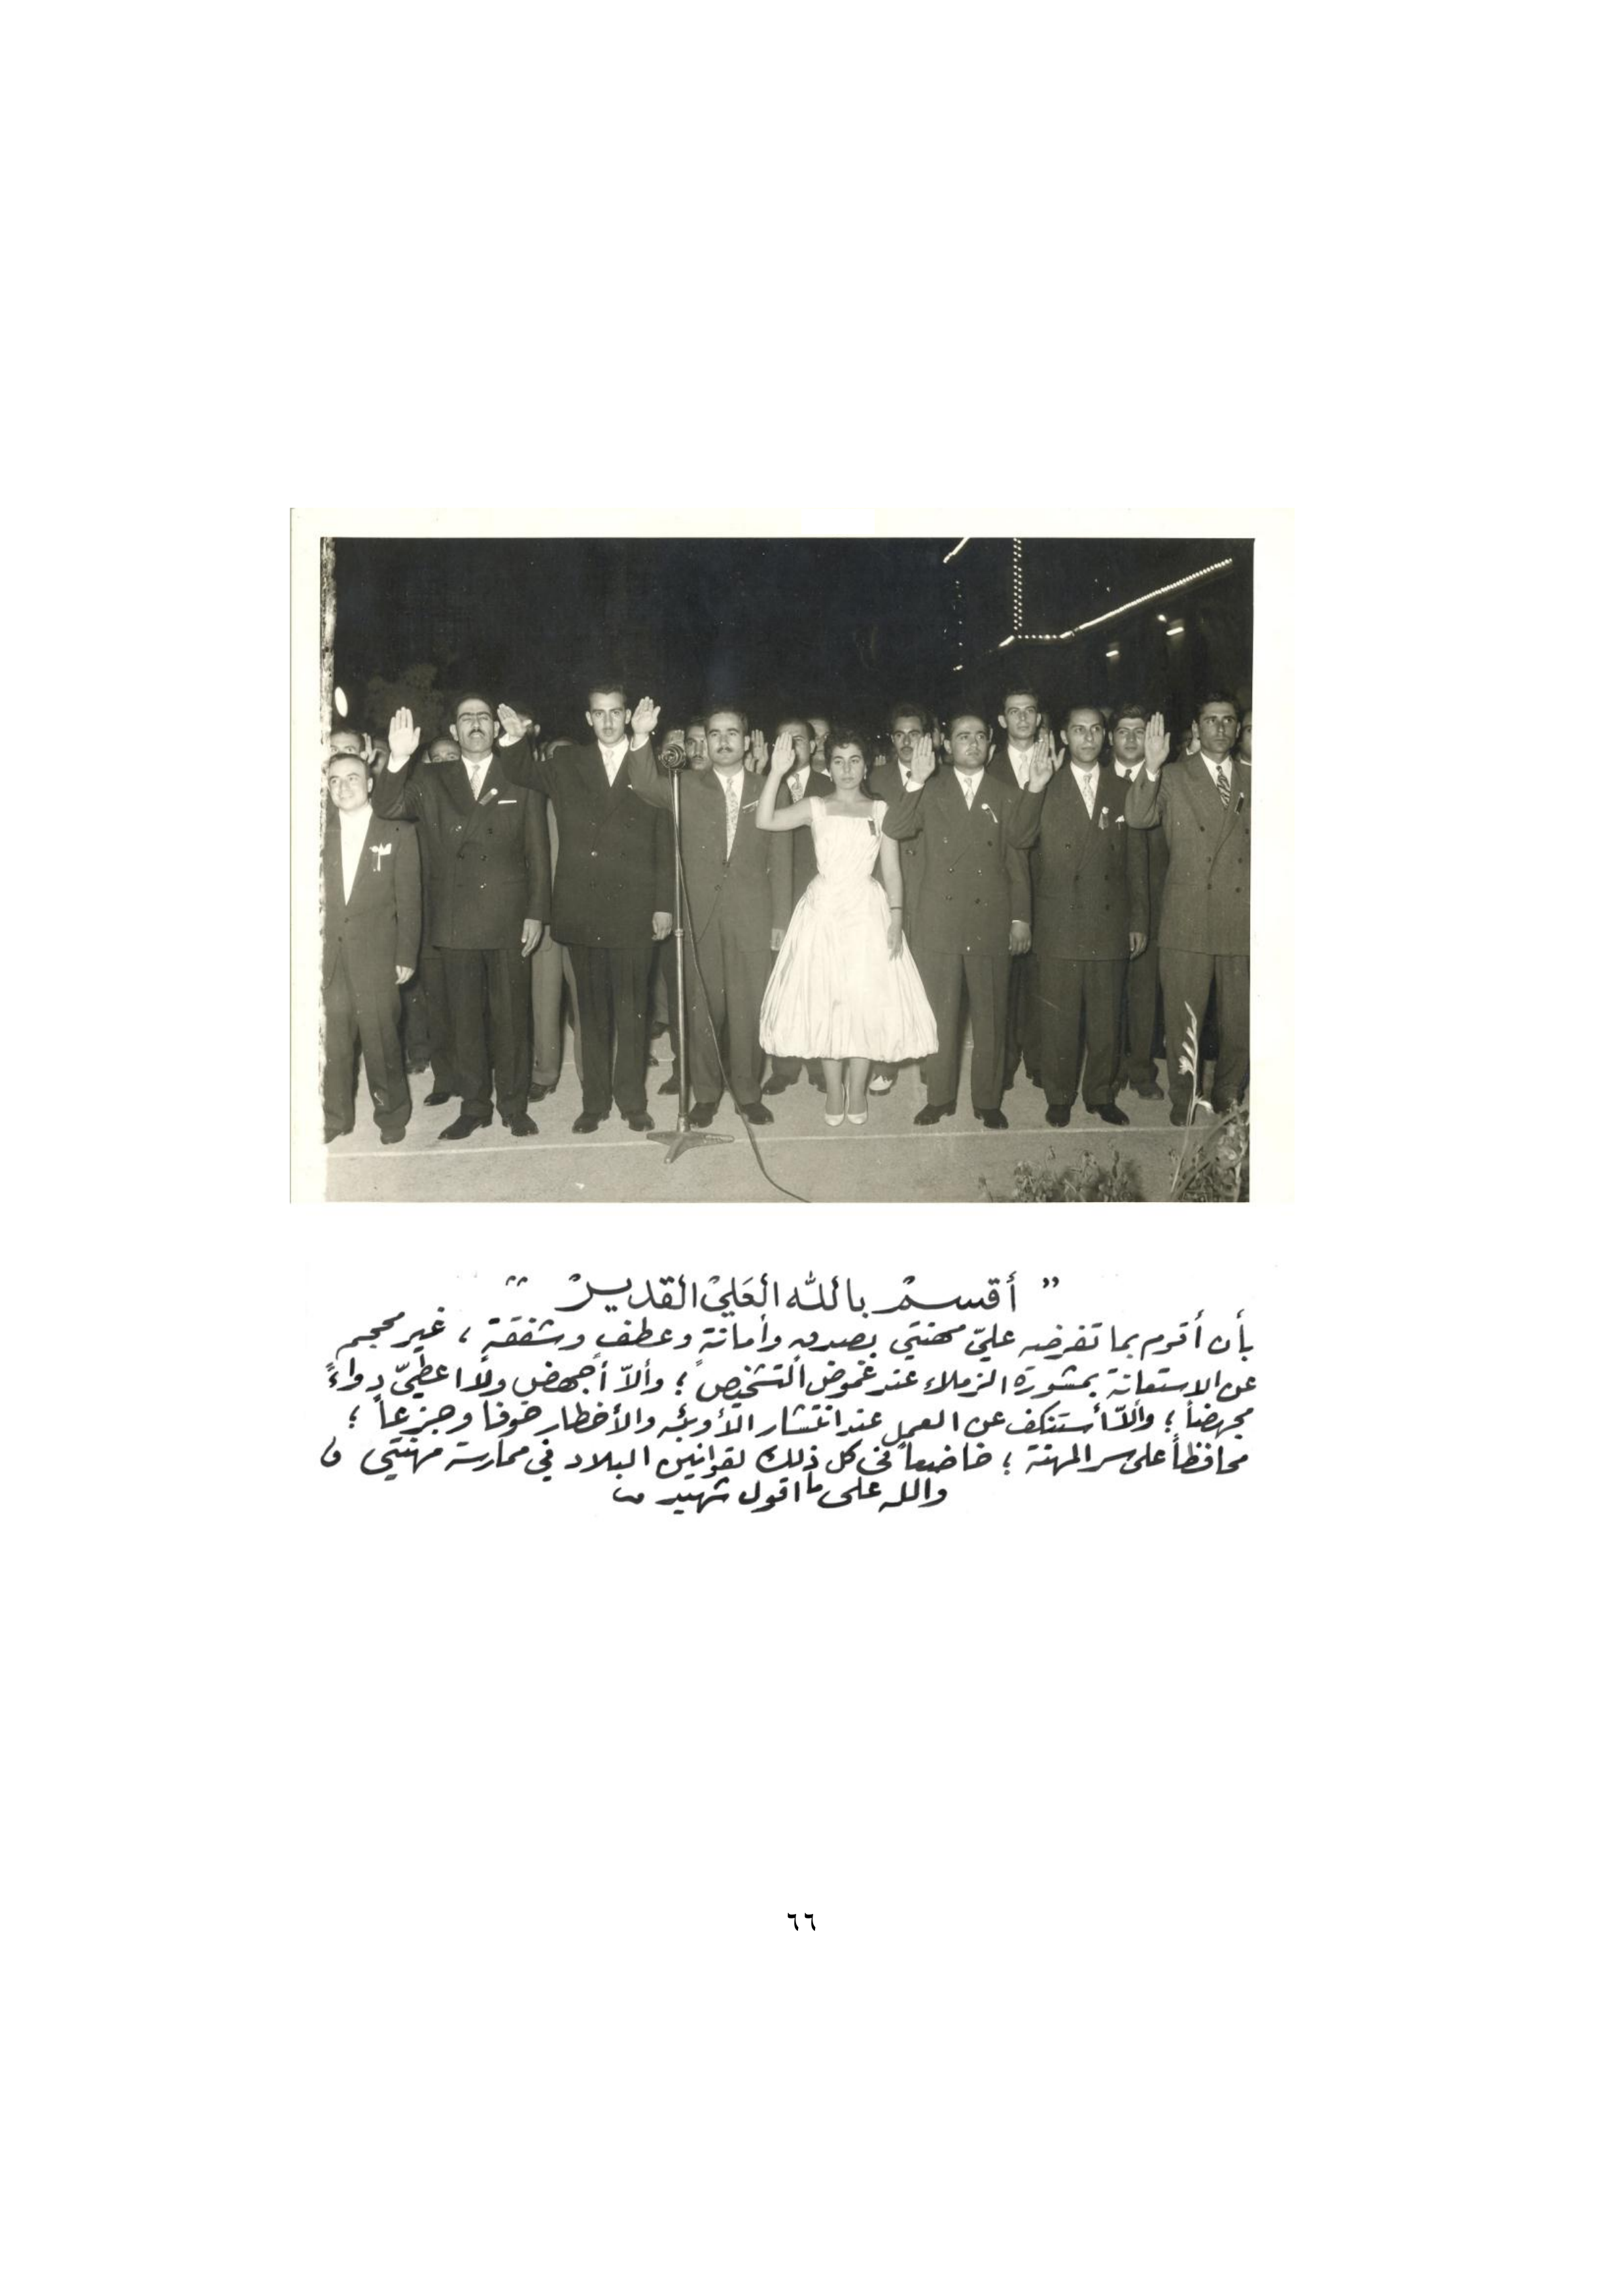 " أقسمْ باللّه العَليْ القديرْ "
بأن أقوم بما تفرضه عليّ مهنتي بصدق وأمانة وعطف وشفقة ، غير محجم
عن الاستعانة بمشورة الزملاء عند غموض التشخيص ؛ وألاّ أجهض ولا اعطيّ دواءً
مجهضاً ؛ وألاّ أستنكف عن العمل عند انتشار الأوبئه والأخطار خوفا وجزعاً ؛
محافظاً على سر المهنة ؛ خاضعاً في كل ذلك لقوانين البلاد في ممارسة مهنتي
والله على ما اقول شهيد
٦٦